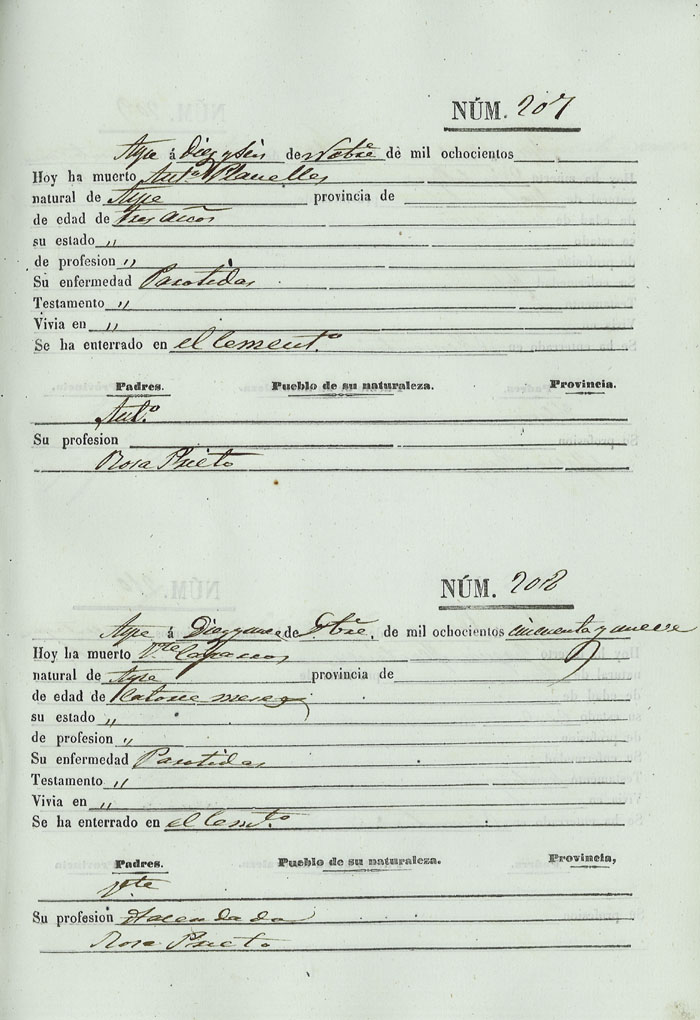 NÚM. 207
Aspe á Diez y seis de Nobre de mil ochocientos
Hoy ha muerto Anto. Planelles
natural de Aspe provincia de
de edad de tres años
su estado „
de profesion „
Su enfermedad Parotidas
Testamento „
Vivia en „
Se ha enterrado en el Cement.o
Padres. Pueblo de su naturaleza. Provincia.
Ant.o
Su profesion
Rosa Prieto
NÚM. 208
Aspe á Diez y nueve de bre. de mil ochocientos cincuenta y nueve
Hoy ha muerto V.te
natural de Aspe provincia de
de edad de Catorce meses
su estado „
de profesion „
Su enfermedad Parotidas
Testamento „
Vivia en „
Se ha enterrado en el Cemt.o
Padres. Pueblo de su naturaleza. Provincia,
V.te
Su profesion Hacendado
Rosa Prieto